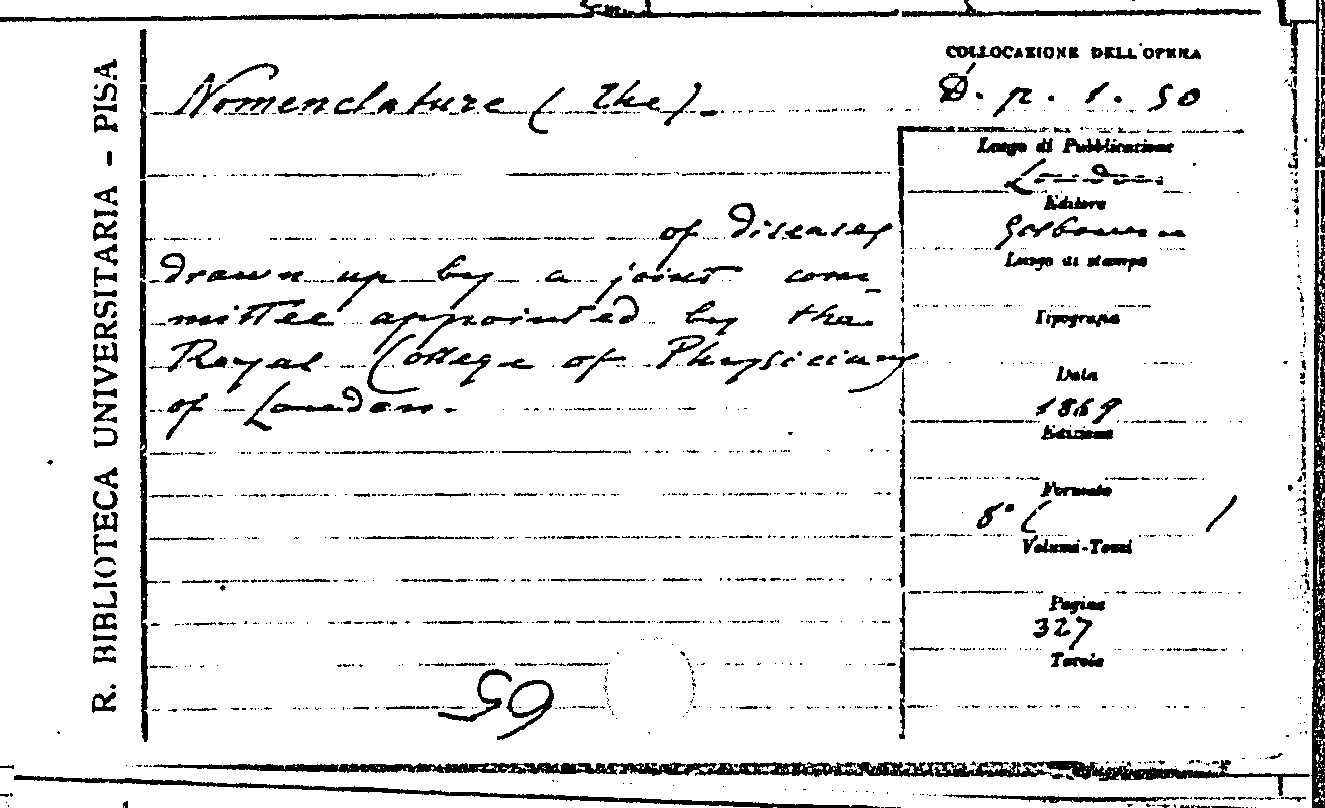 R. BIBLIOTECA UNIVERSITARIA - PISA
COLLOCAZIONE DELL'OPERA
D. p. 1. 50
Nomenclature (The).
of diseases
drawn up by a joint com-
mittee appointed by the
Royal College of Physicians
of London.
Luogo di Pubblicazione
London
Editore
Luogo di stampa
Tipografo
Data
1869
Edizione
Formato
8° ( )
Volumi-Tomi
Pagine
327
Tavole
59